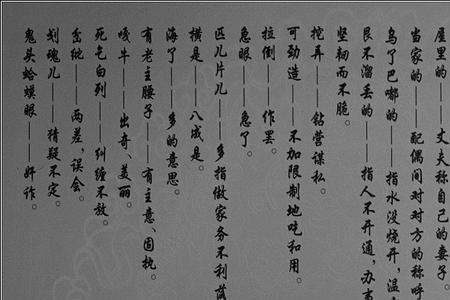 屋里的——丈夫称自己的妻子。
当家的——配偶间对对方的称呼
乌了巴嘟的——指水没烧开,温
艮不溜丢的——指人不开通,办事
坚韧而不脆。
挖弄——钻营谋私。
可劲造——不加限制地吃和用。
拉倒——作罢。
急眼——急了。
匹儿片儿——多指做家务不利落
横是——八成是。
海了——多的意思。
有老主腰子——有主意、固执。
牛——出奇、美丽。
死气白列——纠缠不放。
岔纰——两差,误会。
划魂儿——猜疑不定。
鬼头蛤蟆眼——奸诈。